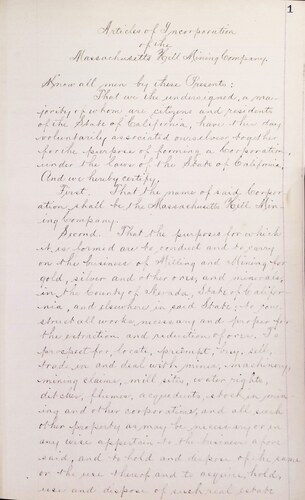 1
Articles of Incorporation
of the
Massachusetts Hill Mining Company.
Know all men by these Presents:
That we the undersigned, a ma-
jority of whom are citizens and residents
of the State of California, have this day,
voluntarily associated ourselves together
for the purpose of forming a Corporation
under the laws of the State of California
And we hereby certify,
First. That the name of said Corpor-
ation shall be the Massachusetts Hill Min-
ing Company.
Second. That the purposes for which
it is formed are to conduct and to carry
on the business of Milling and Mining for
gold, silver and other ores, and minerals,
in the County of Nevada, State of Califor-
nia, and elsewhere in said State; to con-
struct all works necessary and proper for
the extraction and reduction of ores. To
prospect for, locate, preempt, buy, sell,
trade in and deal with mines, machinery,
mining claims, mill sites, water rights,
ditches, flumes, aqueducts, stock in min-
ing and other corporations, and all such
other property as may be necessary or in
any wise appertain to the business afore-
said, and to hold and dispose of the same
or the use thereof and to acquire, hold,
use and dispose of such real estate